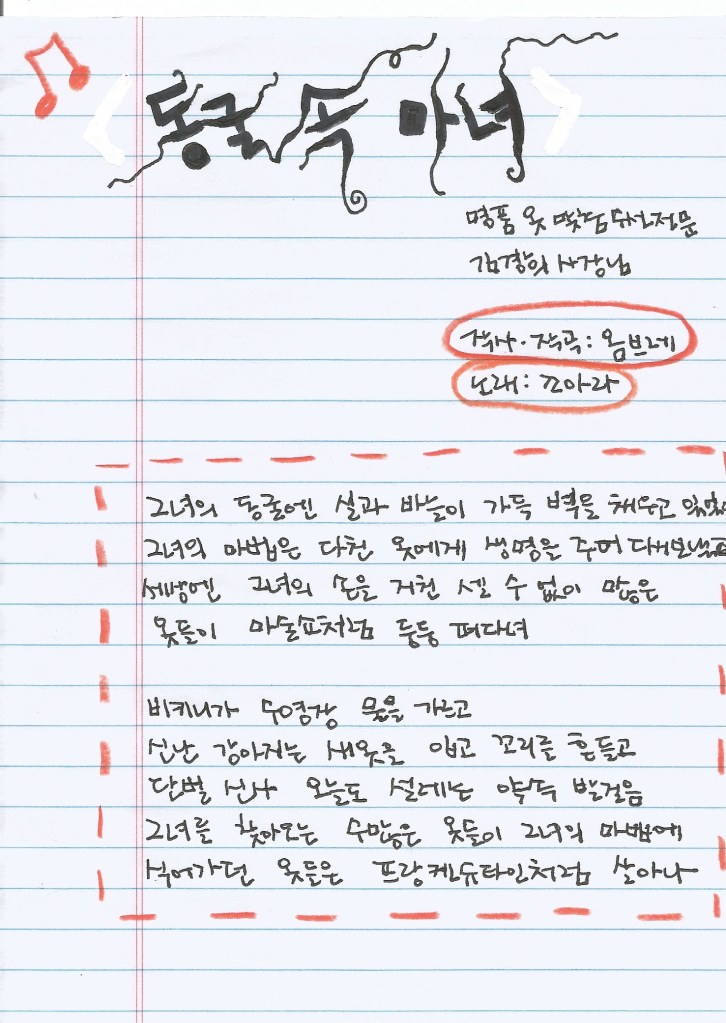 <동굴 속 마녀>
명품 옷 맞춤 수선 전문
김경의 사장님
작사·작곡: 옴브레
노래: 꼬아라
그녀의 동굴엔 실과 바늘이 가득 벽을 채우고 있었
그녀의 마법은 다친 옷에게 생명을 주며
세상엔 그녀의 손을 거친 셀 수 없이 많은
옷들이 마술쇼처럼 둥둥 떠다녀
비키니가 수영장 물을 가르고
신난 강아지는 새옷을 입고 꼬리를 흔들고
단벌 신사 오늘도 설레는 약속 발걸음
그녀를 찾아오는 수많은 옷들이 그녀의 마법에
식어가던 옷들은 프랑켄슈타인처럼 살아나